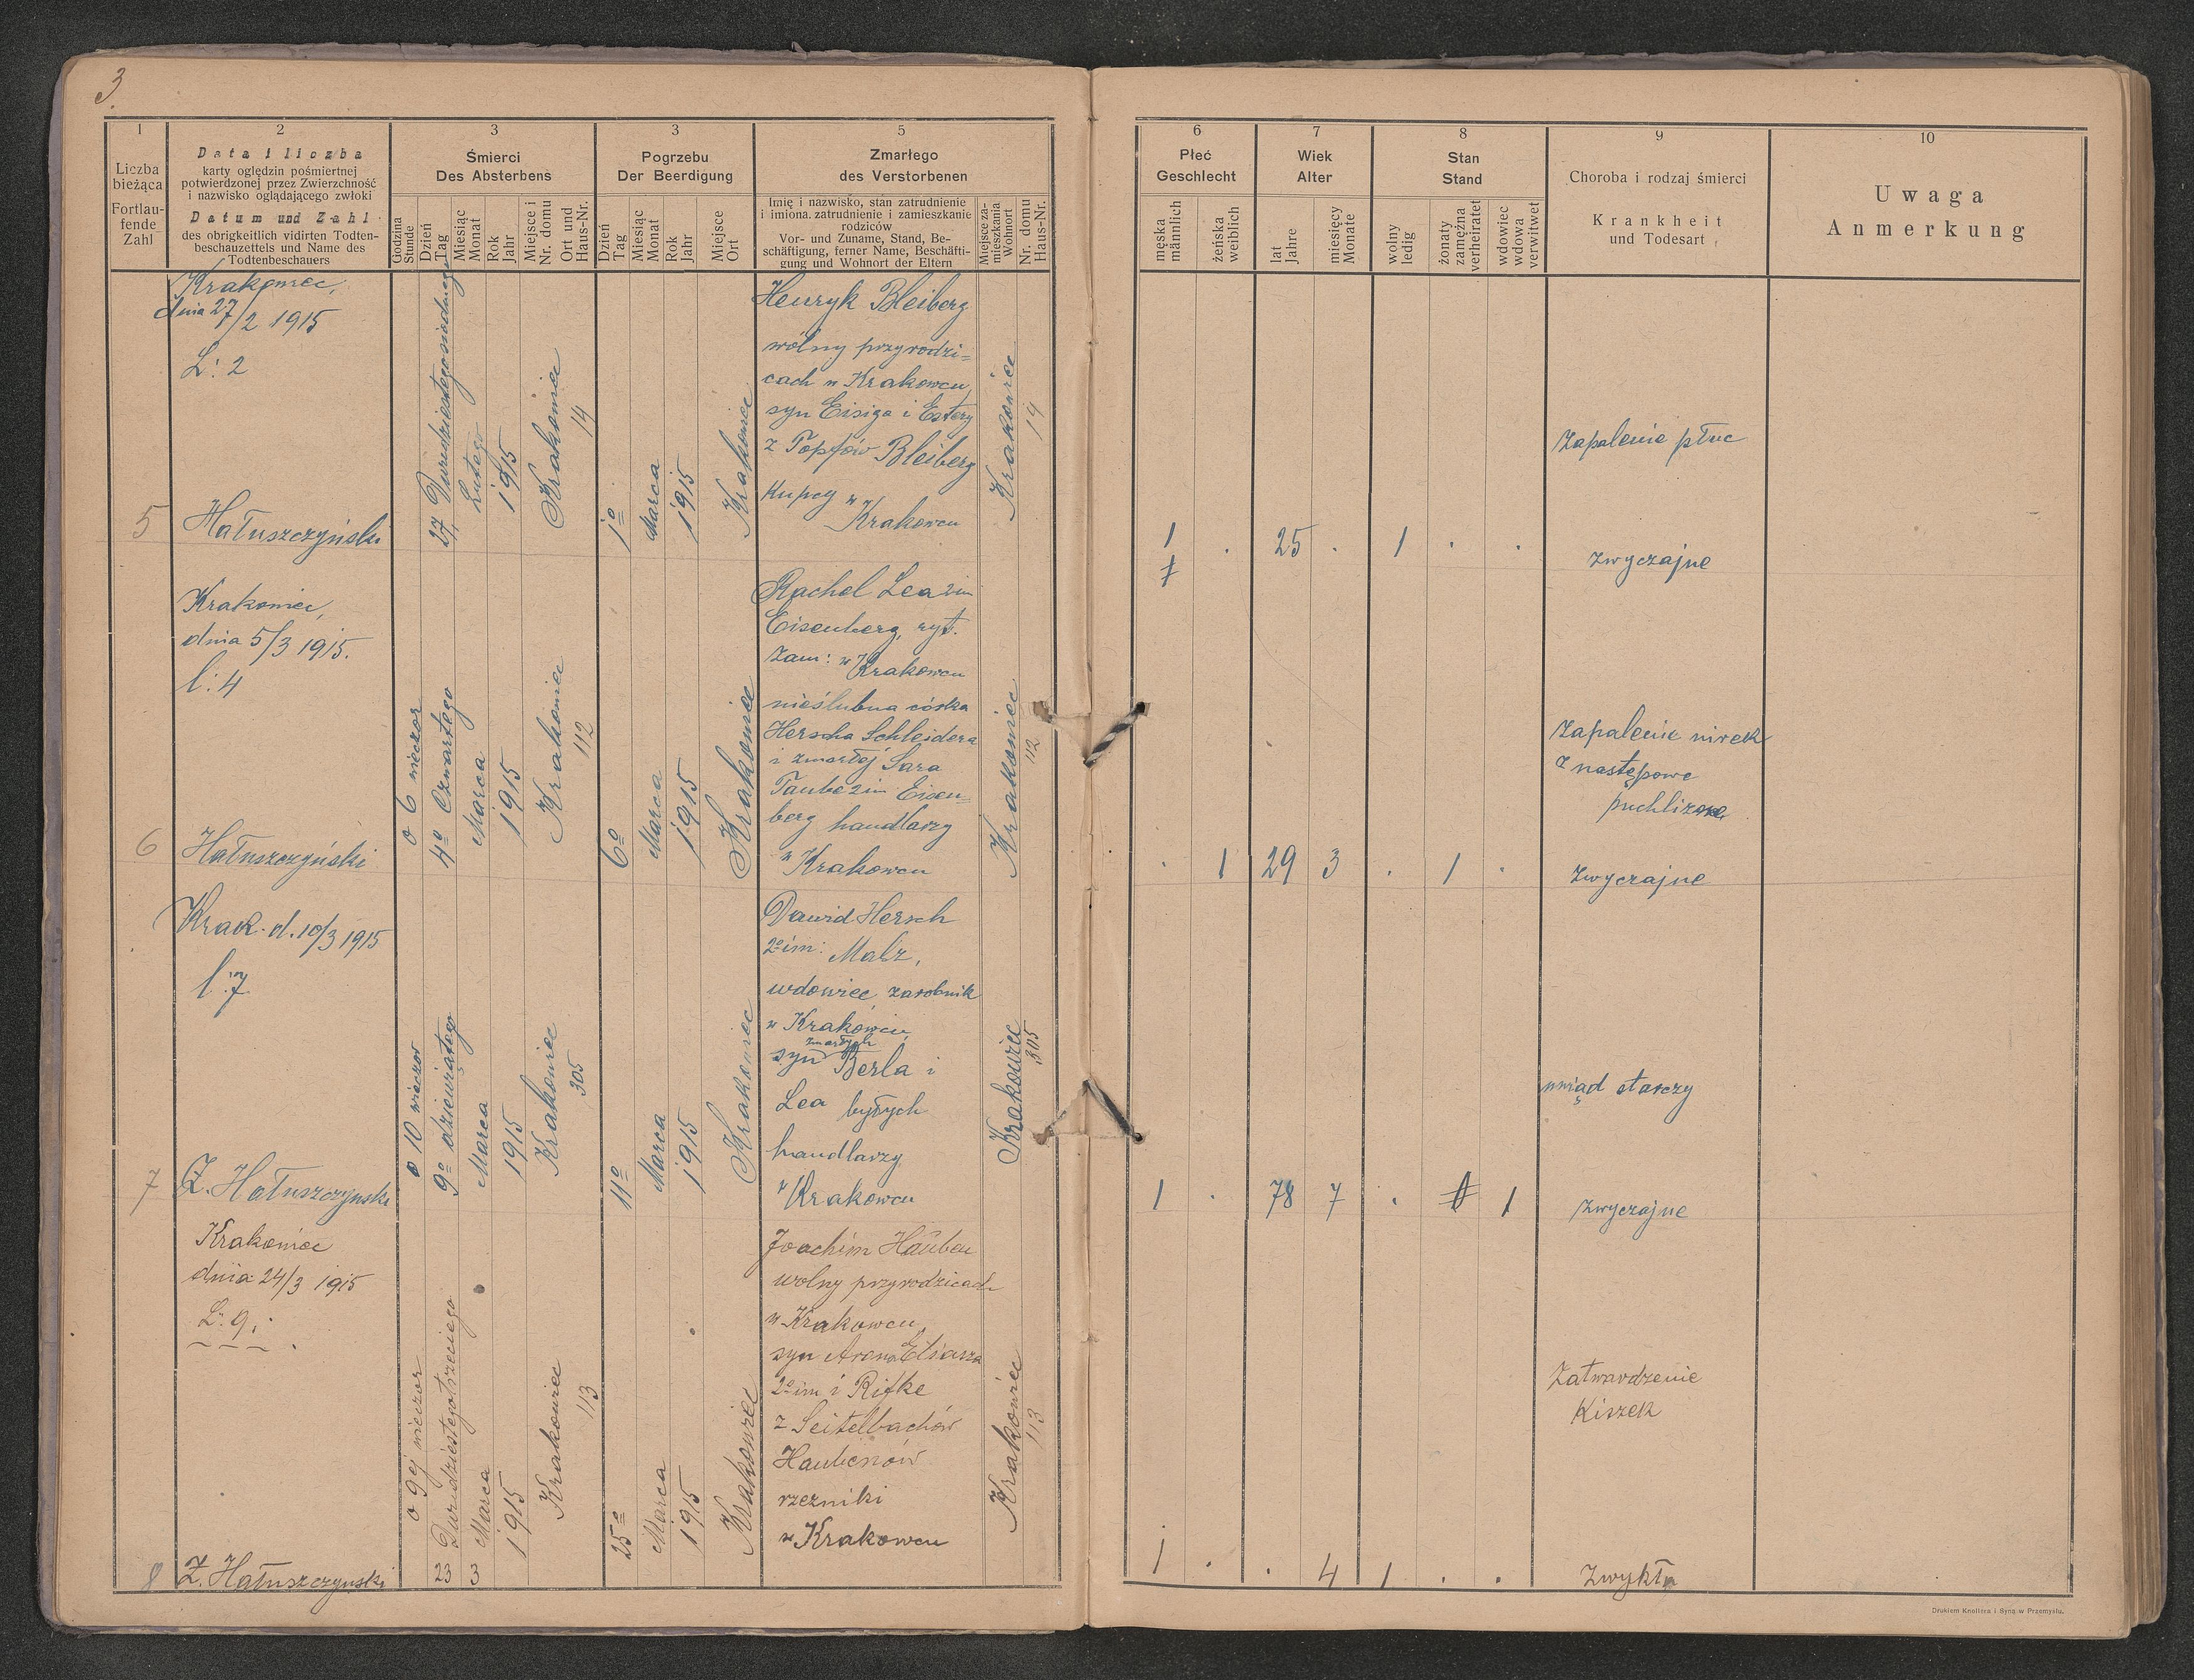 3
1
Liczba
bieżąca
Fortlau-
fende
Zahl
2
Data i liczba
karty oględzin pośmiertnej
potwierdzonej przez Zwierzchność
i nazwisko oglądającego zwłoki
Datum und Zahl
des obrigkeitlich vidirten Todten-
beschauzettels und Name des
Todtenbeschauers
3
Śmierci
Des Absterbens
Godzina
Stunde
Dzień
Tag
Miesiąc
Monat
Rok
Jahr
Miejsce i
Nr. domu
Ort und
Haus-Nr.
3
Pogrzebu
Der Beerdigung
Dzień
Tag
Miesiąc
Monat
Rok
Jahr
Miejsce
Ort
5
Zmarłego
des Verstorbenen
Imię i nazwisko, stan zatrudnienie
i imiona. zatrudnienie i zamieszkanie
rodziców
Vor- und Zuname, Stand, Be-
schäftigung, ferner Name, Beschäfti-
gung und Wohnort der Eltern
Miejsce za-
mieszkania
Wohnort
Nr. domu
Haus-Nr.
6
Płeć
Geschlecht
męska
männlich
żeńska
weiblich
7
Wiek
Alter
lat
Jahre
miesięcy
Monate
8
Stan
Stand
wolny
ledig
żonaty
zamężna
verheiratet
wdowiec
wdowa
verwitwet
9
Choroba i rodzaj śmierci
Krankheit
und Todesart
10
Uwaga
Anmerkung
Krakowiec,
dnia 27/2 1915
L: 2
5
Hałuszczyński
27 Dwudziestego siódmego
Lutego
1915
Krakowiec
14
1o
Marca
1915
Krakowiec
Henryk Bleiberg
wólny przy rodzi=
cach w Krakowcu,
syn Eisiga i Estery
z Topfów Bleiberg
Kupcy w
Krakowcu
Krakowiec
14
1
.
25
.
1
.
.
Zapalenie płuc
zwyczajne
Krakowiec,
dnia 5/3 1915.
l: 4
6
Hałuszczyński
o 6 wieczor
4o Czwartego
Marca
1915
Krakowiec
112
6o
Marca
1915
Krakowiec
Rachel Lea 2im
Eisenberg, ryt.
zam: w Krakowcu
nieślubna córka
Herscha Schleidera
i zmarłej Sara
Taube 2im Eisen=
berg handlarzy
w Krakowcu
Krakowiec
112
.
1
29
3
.
1
.
Zapalenie nirek
z następowe
puchlizne
zwyczajne
Krak. d. 10/3 1915
l: 7
7
Z. Hałuszczyński
o 10 wieczor
9o dziewiątego
Marca
1915
Krakowiec
305
11o
Marca
1915
Krakowiec
Dawid Hersch
2o im: Malz,
wdowiec zarobnik
w Krakowcu,
zmarłych
syn Berla i
Lea byłych
handlarzy
w Krakowcu
Krakowiec
305
1
.
78
7
.
1
Uwiąd starczy
zwyczajne
Krakowiec
dnia 24/3 1915
L: 9.
8
Z. Hałuszczyński
o 9ej wieczor
23 Dwudziestego trzeciego
3 Marca
1915
Krakowiec
113
25o
Marca
1915
Krakowiec
Joachim Hauben
wolny przy rodzicach
w Krakowcu,
syn Arona Eliasza
2o im i Rifke
z Seitelbachów
Haubenów
rzezniki
w Krakowcu
Krakowiec
113
1
.
.
4
1
.
.
Zatwardzenie
Kiszek
Zwykła
Drukiem Knollera i Syna w Przemyślu.